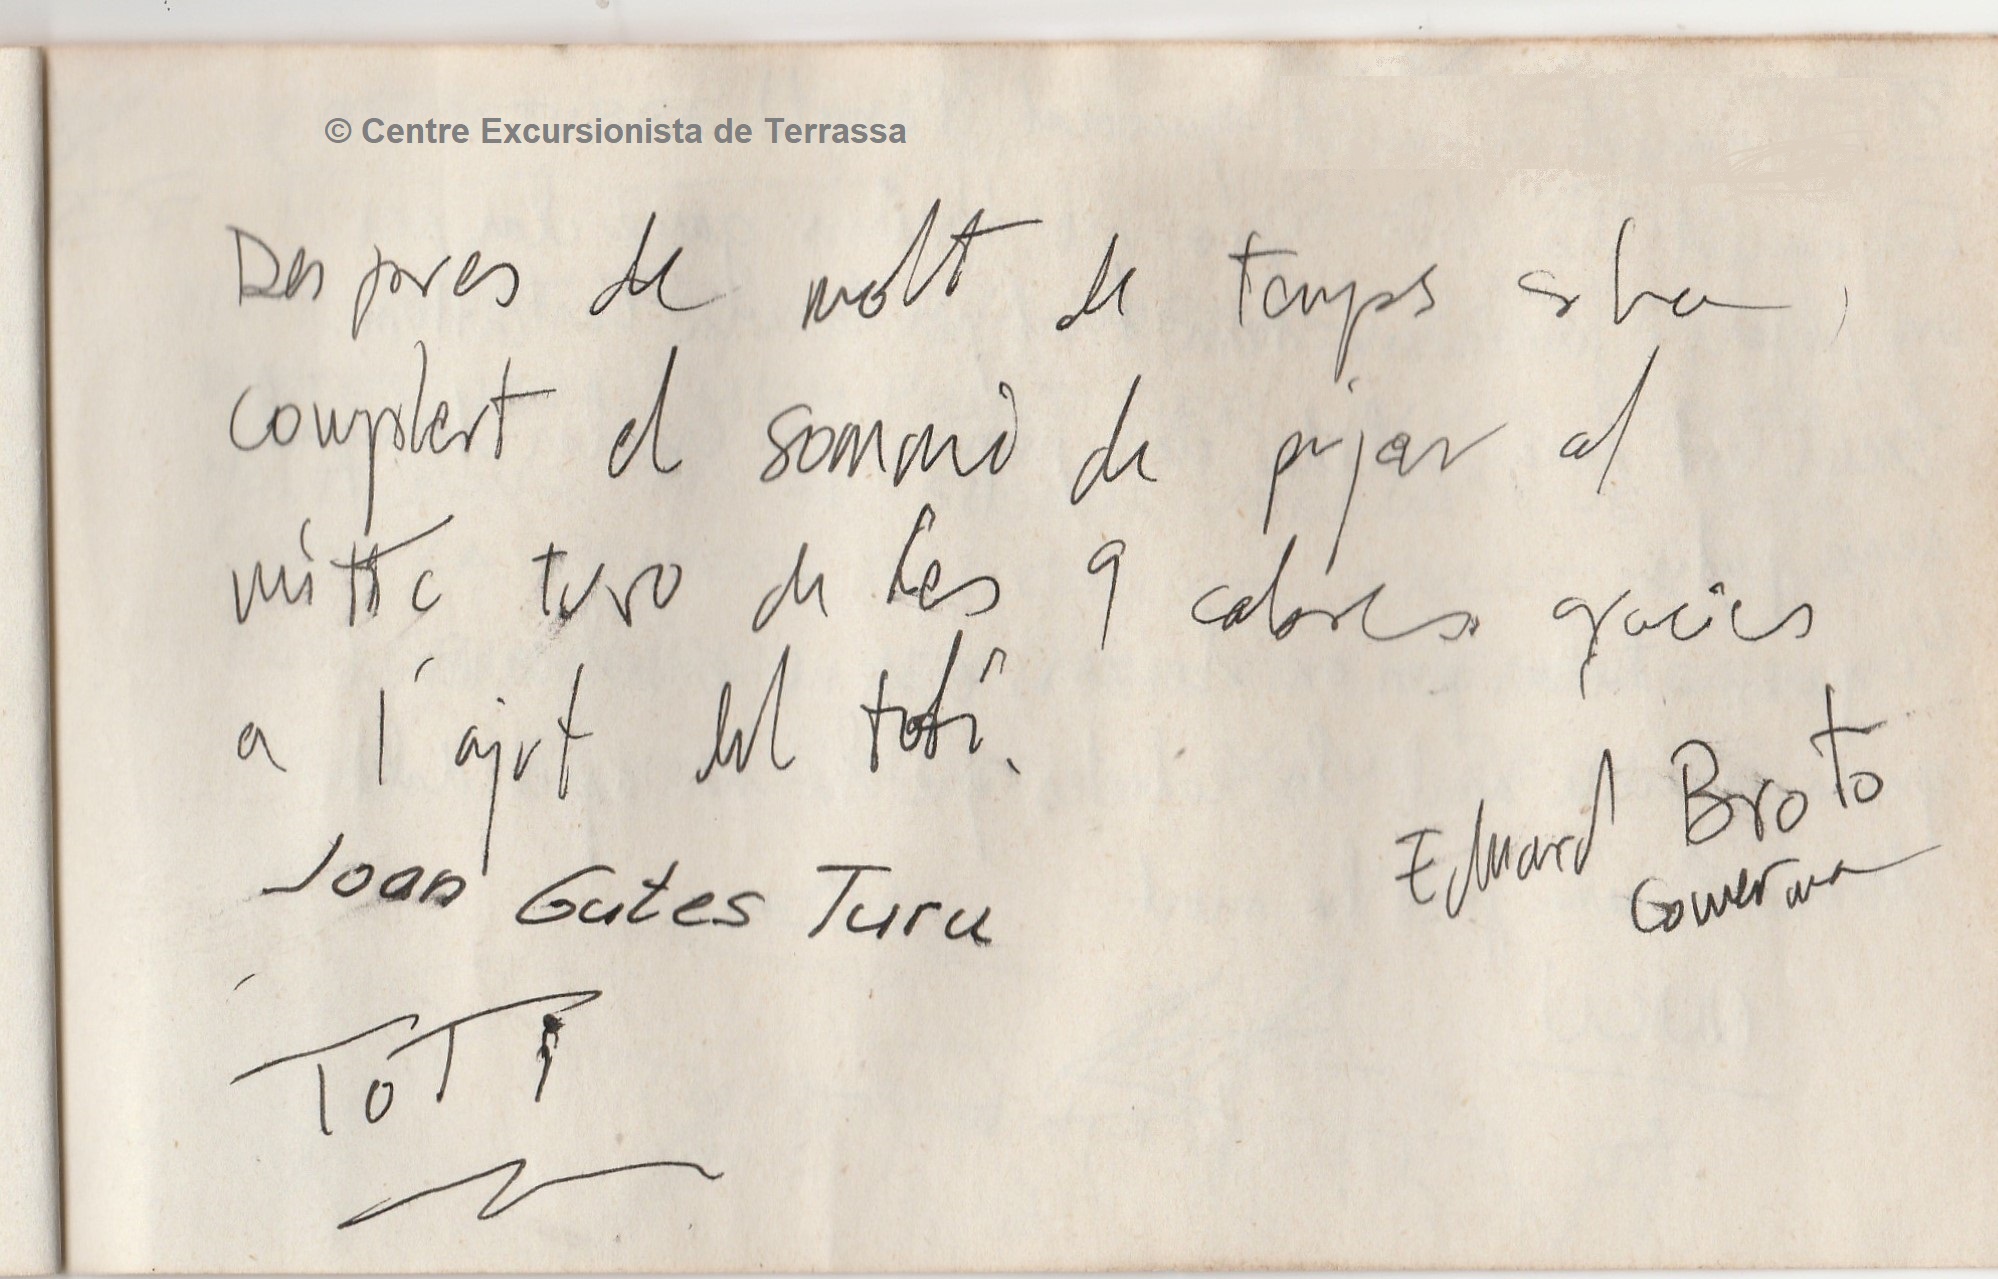 © Centre Excursionista de Terrassa
Despres de molt de temps s ha
complert el somni de pujar al
mític turo de les 9 cabres gracies
a l'ajut del toti.
Eduard Broto
Joan Gutes Turu
TOTI